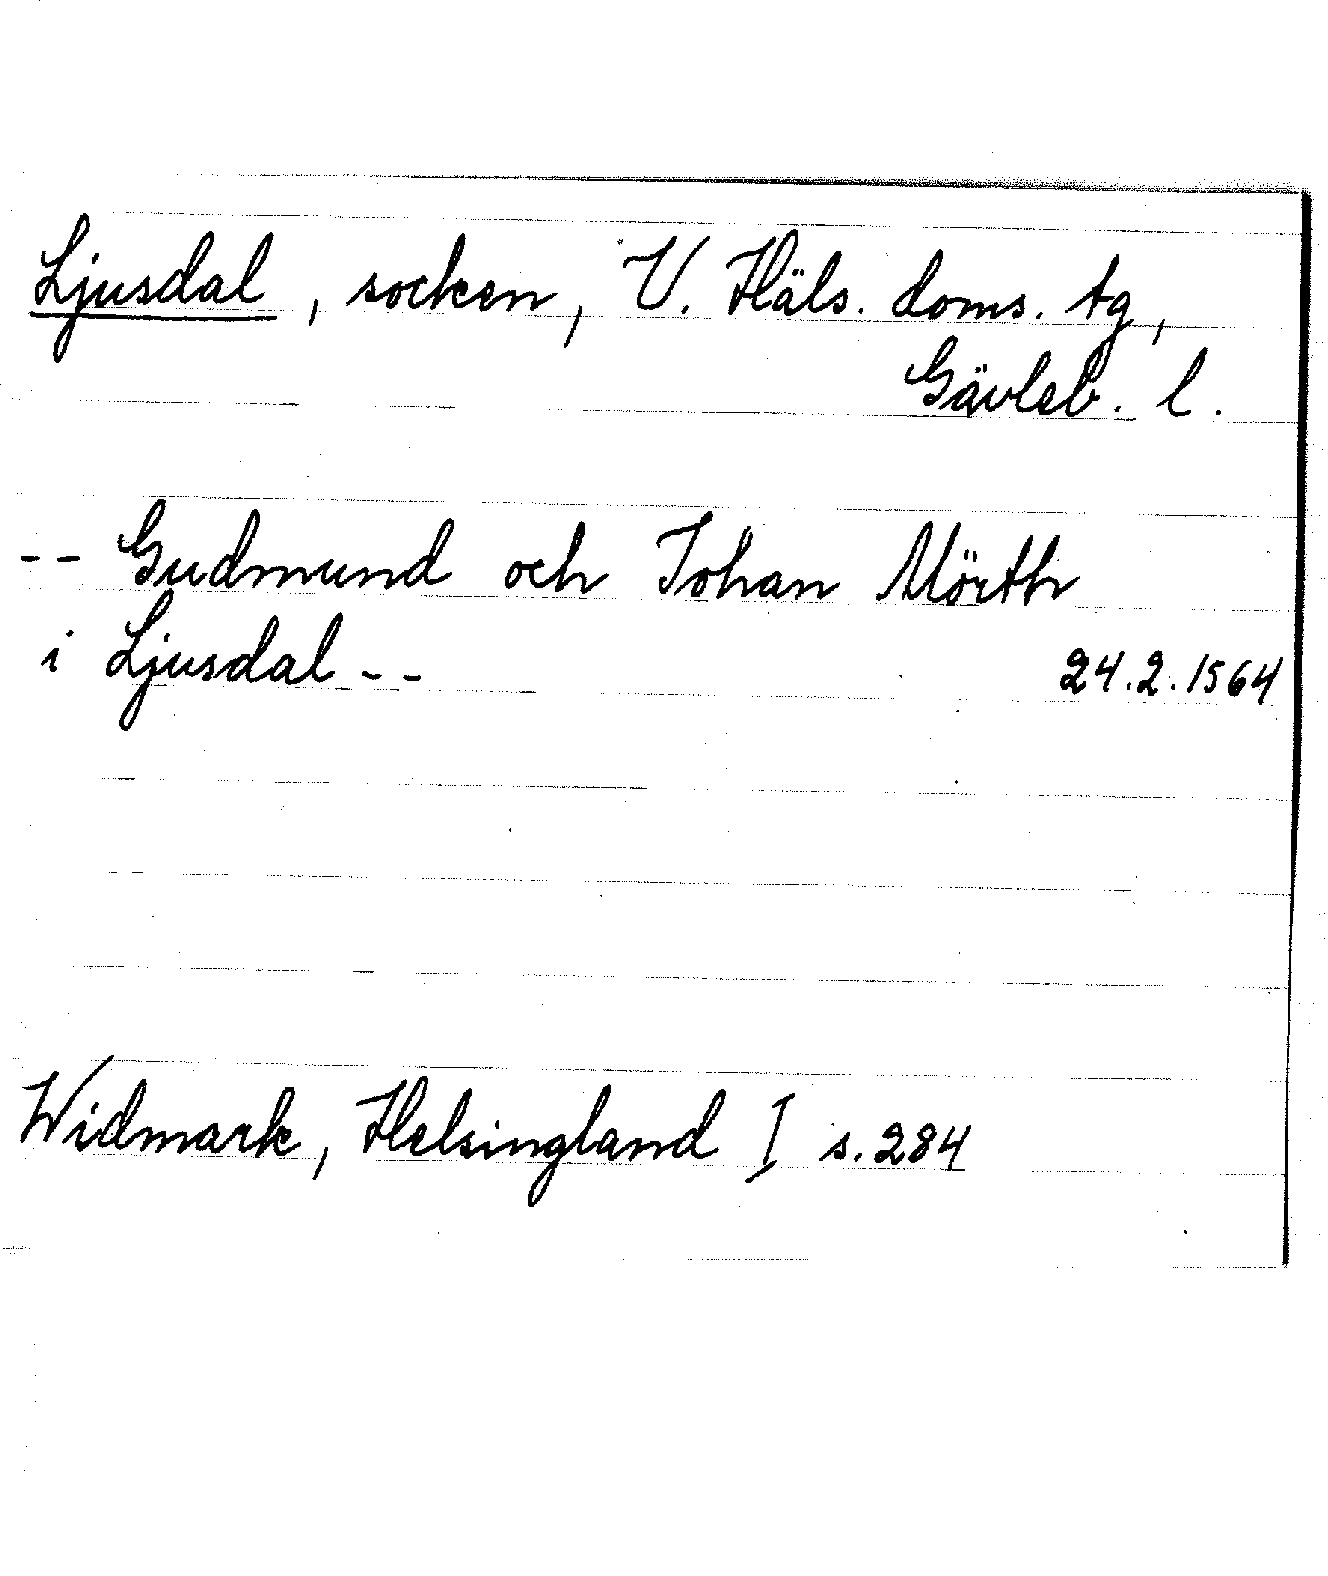 Ljusdal, socken, V. Häls. doms. tg,
Gävleb. l.
-- Gudmund och Johan Mörth
i Ljusdal -- 24.2.1564
Widmark, Helsingland I s. 284